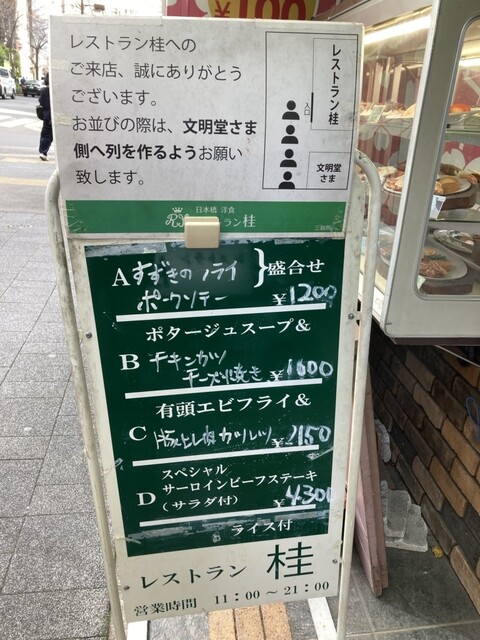 ¥100
レストラン桂への
ご来店、誠にありがとう
ございます。
お並びの際は、文明堂さま
側へ列を作るようお願い
致します。
レストラン桂
入口
文明堂
さま
日本橋 洋食
ラン桂
A すずきのフライ
ポークソテー
盛合せ
¥1200
ポタージュスープ&
B チキンカツ
チーズ焼き ¥1600
有頭エビフライ&
C カツ ¥2150
スペシャル
D サーロインビーフステーキ
(サラダ付) ¥4300
ライス付
レストラン 桂
営業時間 11:00～21:00